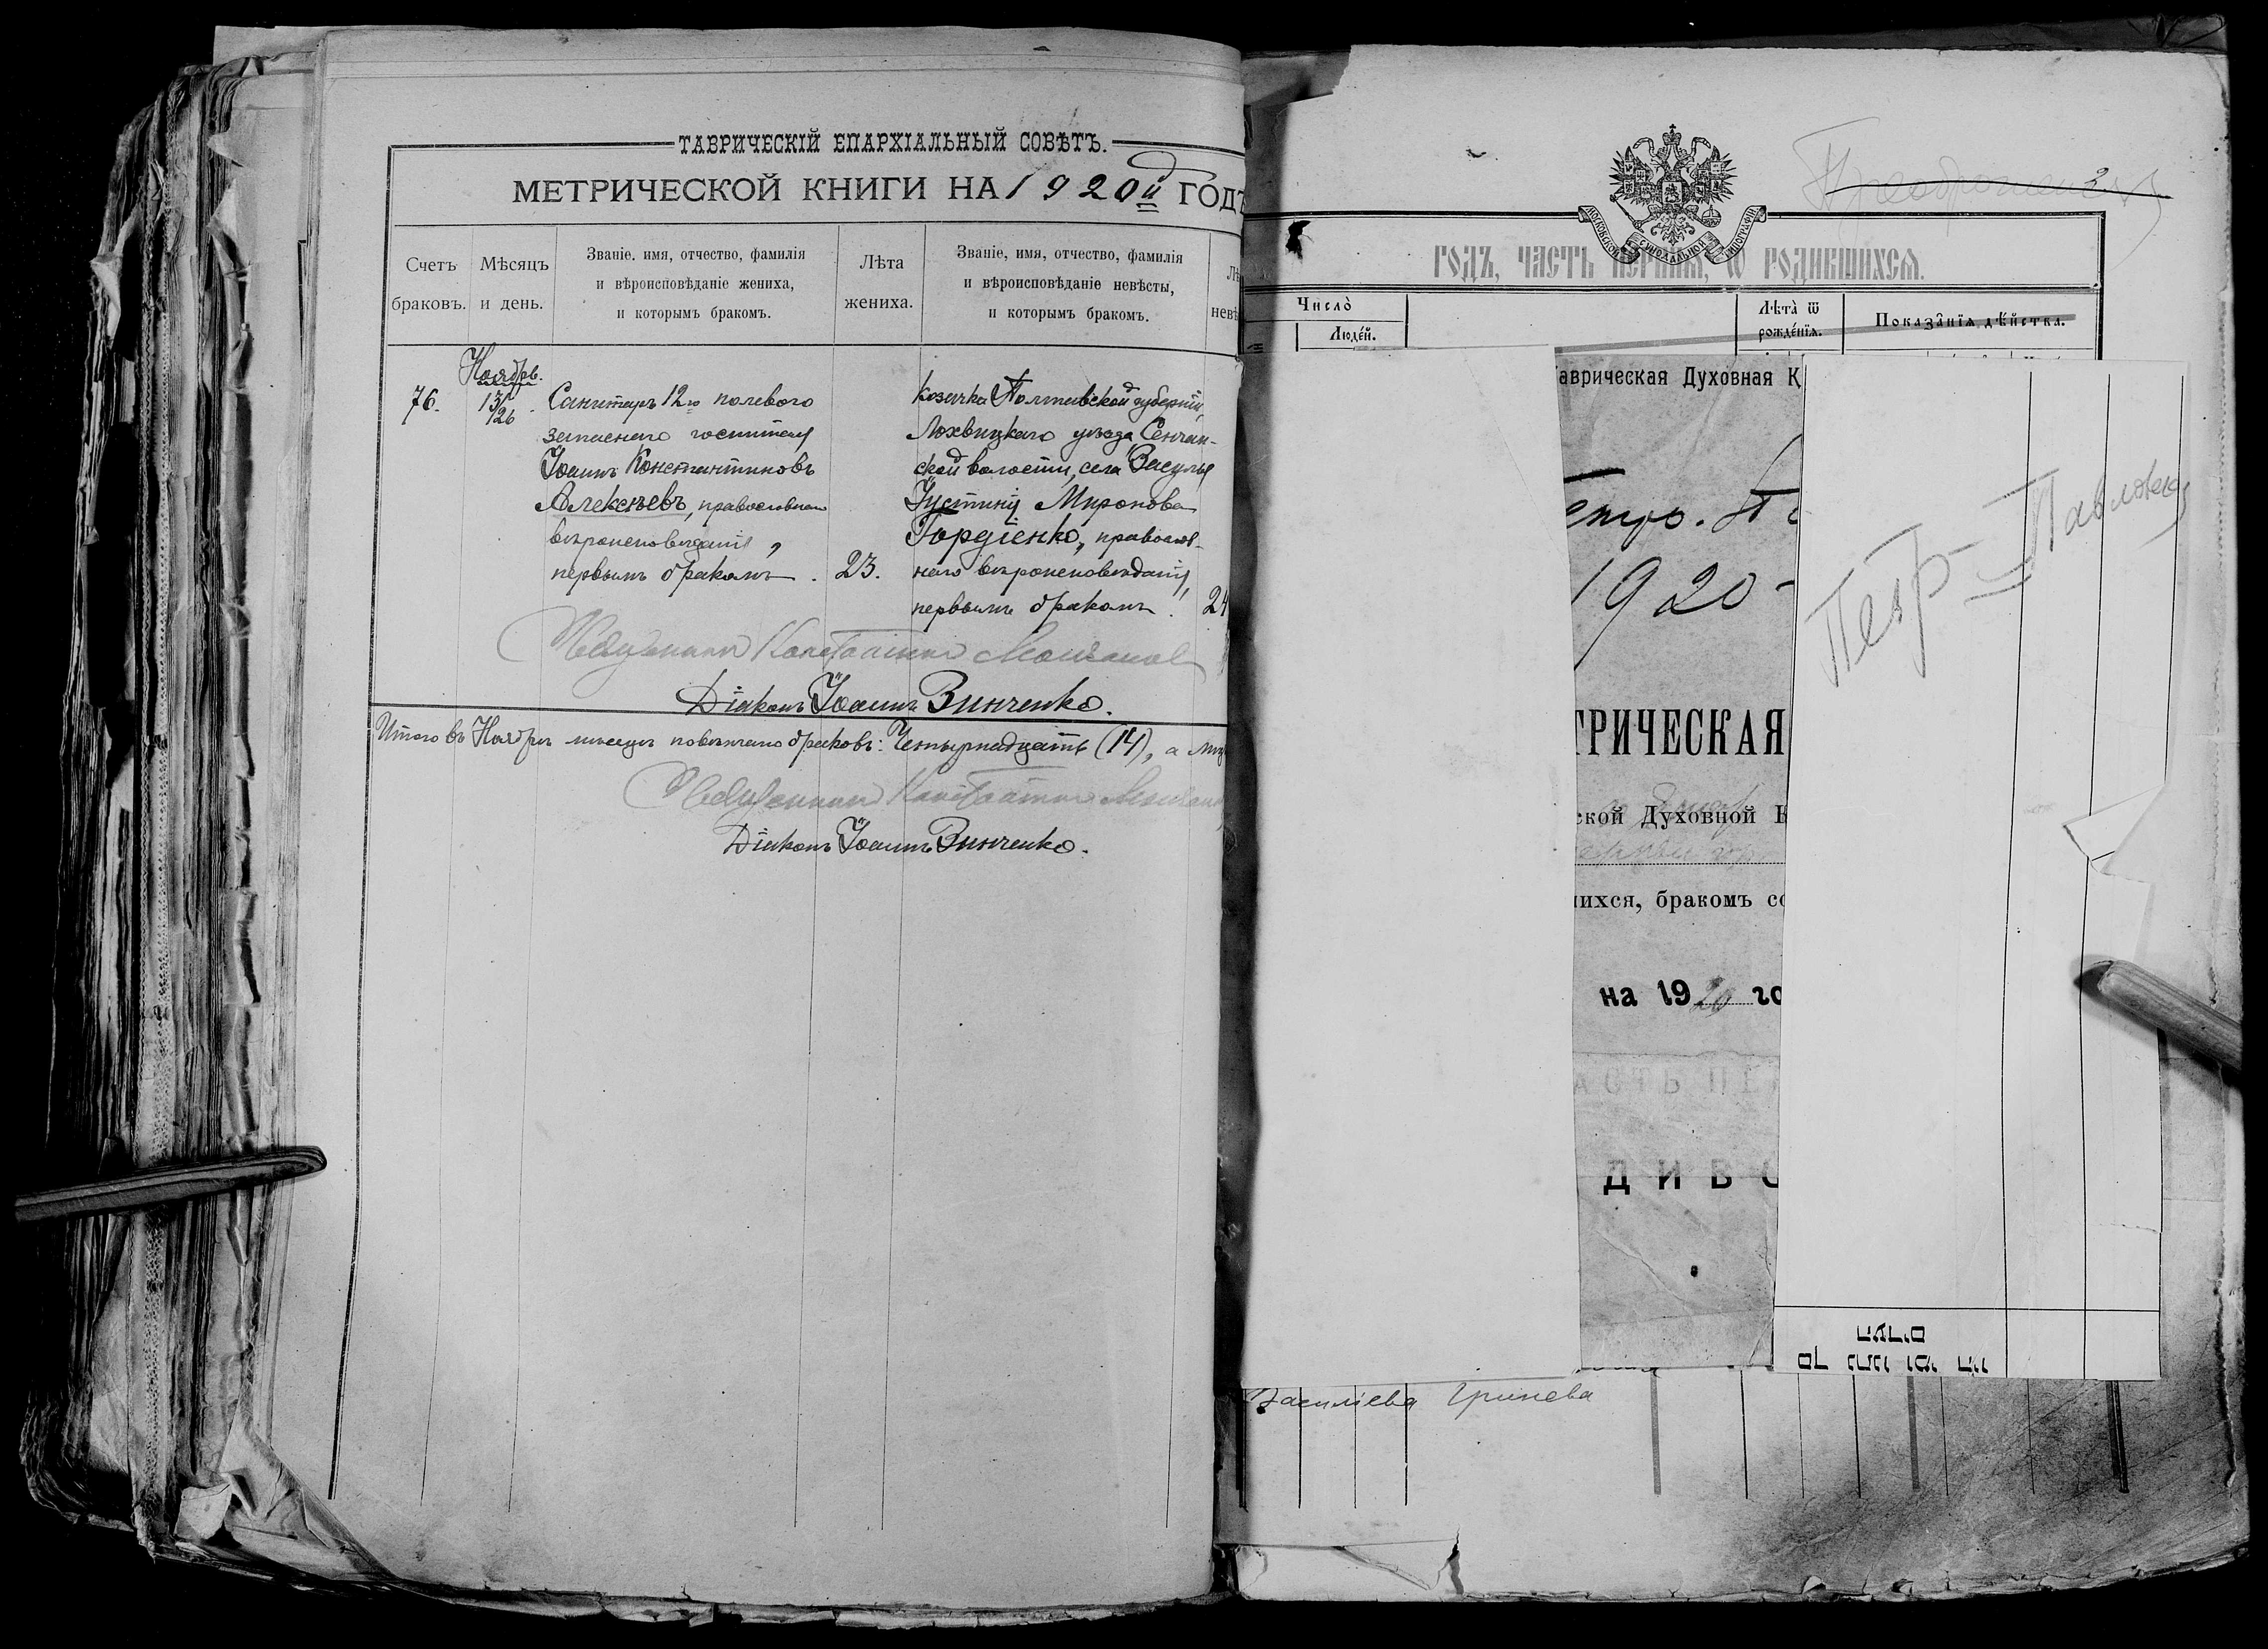 ТАВРИЧЕСКІЙ ЕПАРХІАЛЬНЫЙ СОВѢТЪ.
МЕТРИЧЕСКОЙ КНИГИ НА 1920й ГОДЪ
Счетъ браковъ.
Мѣсяцъ и день.
Званіе, имя, отчество, фамилія
и вѣроисповѣданіе жениха,
и которымъ бракомъ.
Лѣта жениха.
Званіе, имя, отчество, фамилія
и вѣроисповѣданіе невѣсты,
и которымъ бракомъ.
Лѣ
невѣ
Ноябрь.
76.
13/26.
Санитаръ 12го полевого
запаснаго госпиталя
Іоаннъ Константиновъ
Алексѣевъ, православнаго
вѣроисповѣданія,
первымъ бракомъ.
23.
Козачка Полтавской губерніи,
Лохвицкаго уѣзда Сенчан-
ской волости, села Засулья
Іустинія Миронова
Гордіенко, православ-
наго вѣроисповѣданія,
первымъ бракомъ.
24
Священникъ Константинъ
Діаконъ Іоаннъ Зинченко.
Итого въ Ноябрѣ мѣсяцѣ повѣнчано браковъ: Четырнадцать (14), а
Священникъ Константинъ
Діаконъ Іоаннъ Зинченко.
2
МОСКОВСКОЙ СѴНОДАЛЬНОЙ ТИПОГРАФІИ
ГОДЪ, ЧАСТЬ ПЕРВАЯ, Ѿ РОДИВШИХСѦ.
Число̀
Люде́й.
Лѣта̀ ѿ рожде́нїя.
Показа̂нїя дѣ́йства.
аврическая Духовная К
1920
ТРИЧЕСКАЯ
ской Духовной К
ихся, бракомъ со
на 1920 го
АСТЬ ПЕР
ДИВ
Петр-Павловск
Василіева Гринева